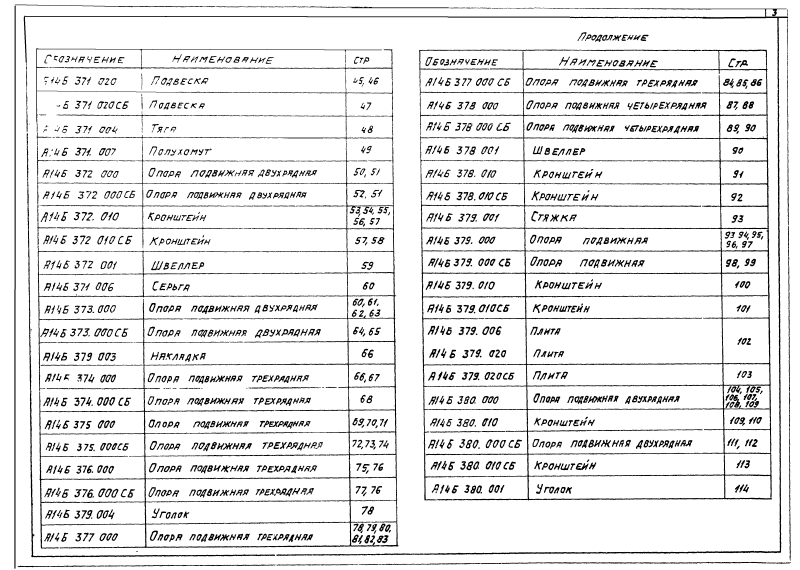 3
Обозначение Наименование Стр
Б14Б 371 020 Подвеска 45, 46
Б 371 020СБ Подвеска 47
А14Б 371 004 Тяга 48
А14Б 371. 007 Полухомут 49
А14Б 372 000 Опора подвижная двухрядная 50, 51
А14Б 372 000СБ Опора подвижная двухрядная 52, 51
А14Б 372. 010 Кронштейн 53, 54, 55,
56, 57
А14Б 372 010 СБ Кронштейн 57, 58
А14Б 372 001 Швеллер 59
А14Б 371 006 Серьга 60
А14Б 373.000 Опора подвижная двухрядная 60, 61,
62, 63
А14Б 373.000СБ Опора подвижная двухрядная 64, 65
А14Б 379 003 Накладка 66
А14Б 374 000 Опора подвижная трехрядная 66, 67
А14Б 374.000 СБ Опора подвижная трехрядная 68
А14Б 375 000 Опора подвижная трехрядная 69,70,71
А14Б 375. 000СБ Опора подвижная трехрядная 72,73,74
А14Б 376.000 Опора подвижная трехрядная 75, 76
А14Б 376.000 СБ Опора подвижная трехрядная 77, 76
А14Б 379.004 Уголок 78
А14Б 377 000 Опора подвижная трехрядная 78, 79, 80,
81, 82, 83
Продолжение
Обозначение Наименование Стр.
А14Б 377 000 СБ Опора подвижная трехрядная 84, 85, 86
А14Б 378 000 Опора подвижная четырехрядная 87, 88
А14Б 378 000 СБ Опора подвижная четырехрядная 89, 90
А14Б 378 001 Швеллер 90
А14Б 378. 010 Кронштейн 91
А14Б 378. 010 СБ Кронштейн 92
А14Б 379. 001 Стяжка 93
А14Б 379. 000 Опора подвижная 93 94, 95,
96, 97
А14Б 379. 000 СБ Опора подвижная 98, 99
А14Б 379. 010 Кронштейн 100
А14Б 379. 010СБ Кронштейн 101
А14Б 379. 006 Плита
102
А14Б 379. 020 Плита
А14Б 379. 020СБ Плита 103
А14Б 380. 000 Опора подвижная двухрядная 104, 105,
106, 107,
108, 109
А14Б 380. 010 Кронштейн 109, 110
А14Б 380. 000 СБ Опора подвижная двухрядная 111, 112
А14Б 380 010 СБ Кронштейн 113
А14Б 380. 001 Уголок 114